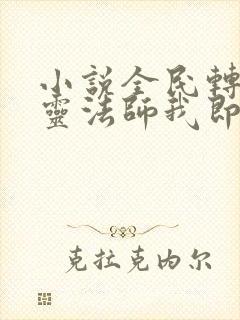 小说全民轉
靈法师我即
克拉克内尔